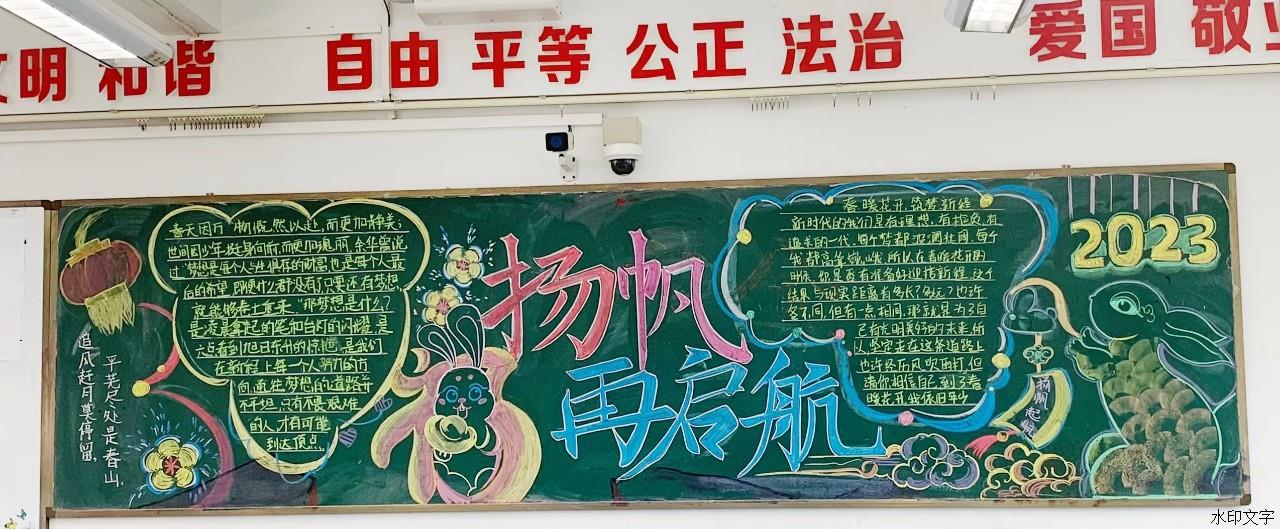 文明 和谐 自由 平等 公正 法治 爱国 敬业
春天因万物既然以赴,而更加静美;
世间因少年挺身向前,而更加瑰丽。余华曾说
过"梦想是每个人与生俱存的财富,也是每个人最
后的希望。即便什么都没有了,只要还有梦想,
就能够卷土重来。"那梦想是什么?
是凌晨拿起的笔和台灯的闪耀,是
六点看到旭日东升的惊艳,是我们
在新程上每一个人努力的方
向,通往梦想的道路并
不平坦,只有不畏艰难
的人,才有可能
到达顶点。
追风赶月莫停留,
平芜尽处是春山。
扬帆
再启航
春暖花开,筑梦新程
新时代的我们是有理想,有抱负,有
追求的一代,每个梦都波澜壮阔,每个
我都
所以在春暖花开的
时候,你是否有准备好迎接新程,这个
结果与现实距离有多长?多远?也许
各不同,但有一点相同,那就是为了自
己有光明美好的未来,所
以坚定走在这条道路上
也许经历风吹雨打,但
请你相信自己,到了春
暖花开,我依旧
2023
扬帆起航
水印文字